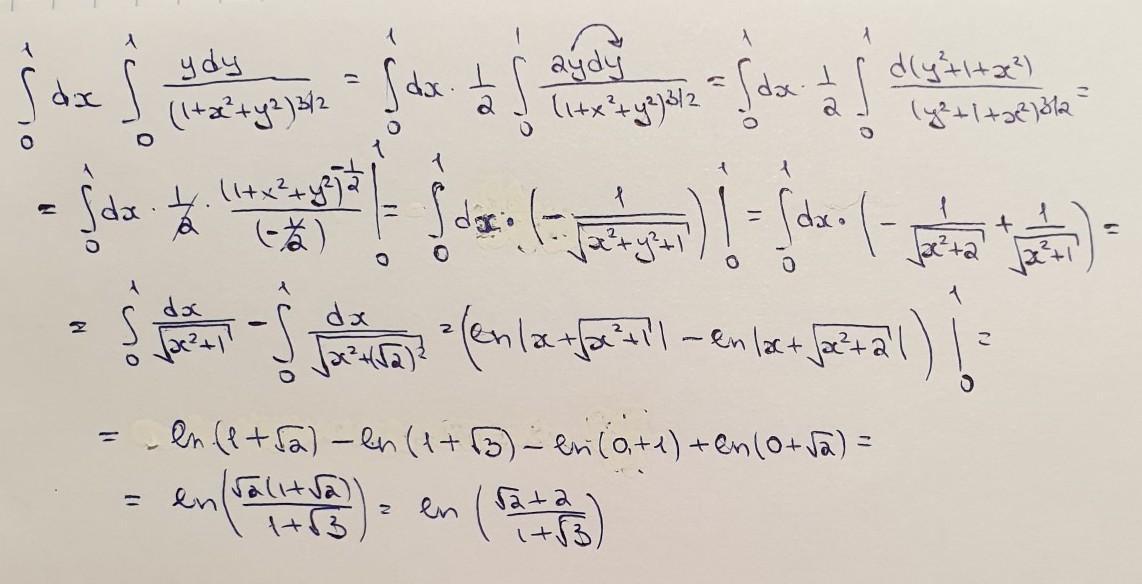 ∫₀¹ dx ∫₀¹ ydy/(1+x²+y²)^{3/2} = ∫₀¹ dx · 1/2 ∫₀¹ 2ydy/(1+x²+y²)^{3/2} = ∫₀¹ dx · 1/2 ∫₀¹ d(y²+1+x²)/(y²+1+x²)^{3/2} =
= ∫₀¹ dx · 1/2 · (1+x²+y²)^{-1/2}/(-1/2) |₀¹ = ∫₀¹ dx · (- 1/√(x²+y²+1)) |₀¹ = ∫₀¹ dx · (- 1/√(x²+2) + 1/√(x²+1)) =
= ∫₀¹ dx/√(x²+1) - ∫₀¹ dx/√(x²+(√2)²) = (ln|x+√(x²+1)| - ln|x+√(x²+2)|) |₀¹ =
= ln(1+√2) - ln(1+√3) - ln(0+1) + ln(0+√2) =
= ln(√2(1+√2)/(1+√3)) = ln((√2+2)/(1+√3))